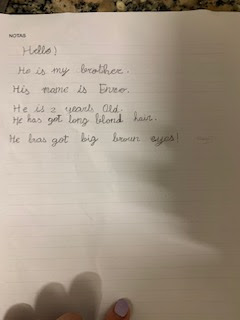 NOTAS
Hello!
He is my brother.
His name is Enzo.
He is 2 years Old.
He has got long blond hair.
He has got big broun eyes!